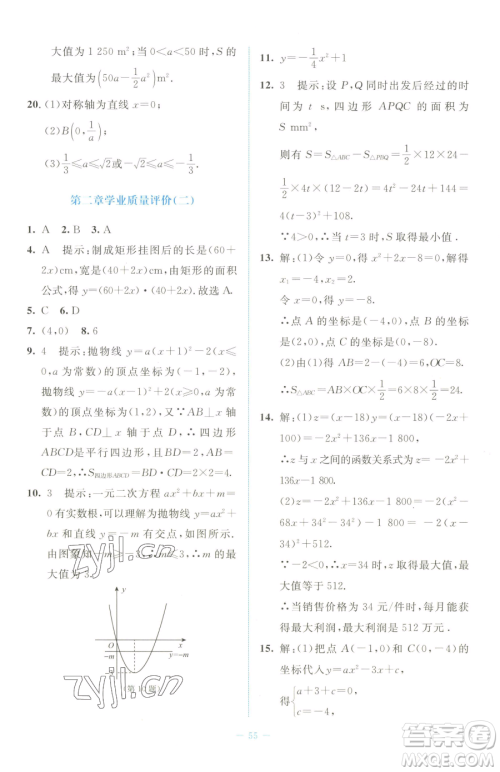 大值为 1 250 m²；当 0＜a＜50 时，S 的
最大值为(50a－1/2a²)m².
20. (1)对称轴为直线 x＝0；
(2)B(0，1/a)；
(3)1/3≤a≤√2/2或－√2/2≤a≤－1/3.
第二章学业质量评价(二)
1. A 2. B 3. A
4. A 提示：制成矩形挂图后的长是(60＋
2x)cm，宽是(40＋2x)cm，由矩形的面积
公式，得 y＝(60＋2x)(40＋2x). 故选 A.
5. C 6. D
7. (4,0) 8. 6
9. 4 提示：抛物线 y＝a(x＋1)²－2(x≤0，
a 为常数)的顶点坐标为(－1，－2)，抛
物线 y＝a(x－1)²＋2(x≥0，a 为常
数)的顶点坐标为(1,2). 又∵AB⊥x
轴于点 B，CD⊥x 轴于点 D，∴四边形
ABCD是平行四边形，且 AB＝2，BD＝2，
CD＝2，∴S四边形ABCD＝2×2＝4.
10. 3 提示：一元二次方程 ax²＋bx＋m＝0
有实数根，可以理解为抛物线 y＝ax²＋
bx 和直线 y＝－m 有交点，如图所示.
由图象知－m≥－3，∴m≤3，∴m 的最
大值为 3.
y
O
x
－m
－m
－3
第10题
11. y＝－1/4x²＋1
12. 3 提示：设 P，Q 同时出发后经过的时
间为 t s，四边形 APQC 的面积为
S mm²，
则有 S＝S△ABC－S△PBQ＝1/2×12×24－
1/2×4t×(12－2t)＝4t²－24t＋144＝
4(t－3)²＋108.
∵4＞0，∴当 t＝3 时，S 取得最小值.
13. 解：(1)令 y＝0，得 x²＋2x－8＝0，解得
x₁＝－4，x₂＝2.
令 x＝0，得 y＝－8.
∴点 A 的坐标是(－4,0)，点 B 的坐
标是(2,0)，点 C 的坐标是(0，－8).
(2)由(1)得 AB＝6，OC＝8，
∴S△ABC＝AB×OC×1/2＝6×8×1/2＝24.
14. 解：(1)z＝(x－18)y＝(x－18)(－2x＋
100)＝－2x²＋136x－1 800，
∴z 与 x 之间的函数关系式为 z＝－2x²＋
136x－1 800.
(2)∵z＝－2x²＋136x－1 800，
∴z＝－2(x－34)²＋512.
∵－2＜0，∴当 x＝34 时，z 取得最大值，
最大值等于 512.
∴当销售单价为 34 元/件时，厂商获得
最大利润，最大利润为 512 万元.
15. 解：(1)把点 A(1,0)和点 C(0，－4)的
坐标代入 y＝ax²＋3x＋c，
得{a＋3＋c＝0，
c＝－4，
zyjl.cn
zyjl.cn
55
答案圈
MXQE.COM